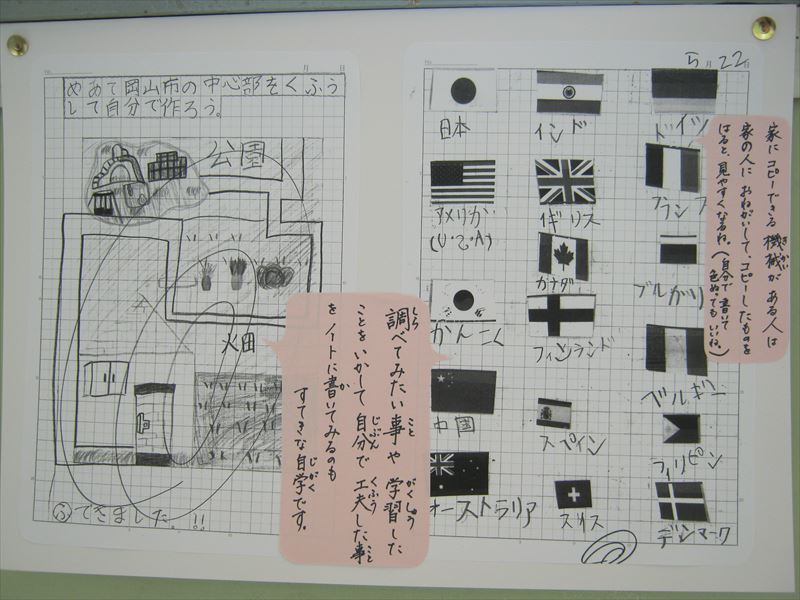 月 日
めあて岡山市の中心部をくふう
して自分で作ろう。
公園
火田
ふできました。!!
調べてみたい事や学習した
しら こと がくしゅう
ことをいかして自分で工夫した事
じぶん くふう こと
をノートに書いてみるのも
か
すてきな自学です。
じがく
5月22日
日本
インド
ドイツ
アメリカ
(U.S.A)
イギリス
フランス
カナダ
ブルガリ
かんこく
フィンランド
ベルギー
中国
スペイン
フィリピン
オーストラリア
スイス
デンマーク
家にコピーできる機械がある人は
きかい
家の人におねがいして、コピーしたものを
はると、見やすくなるね。(自分で書いて
色ぬってもいいね。)